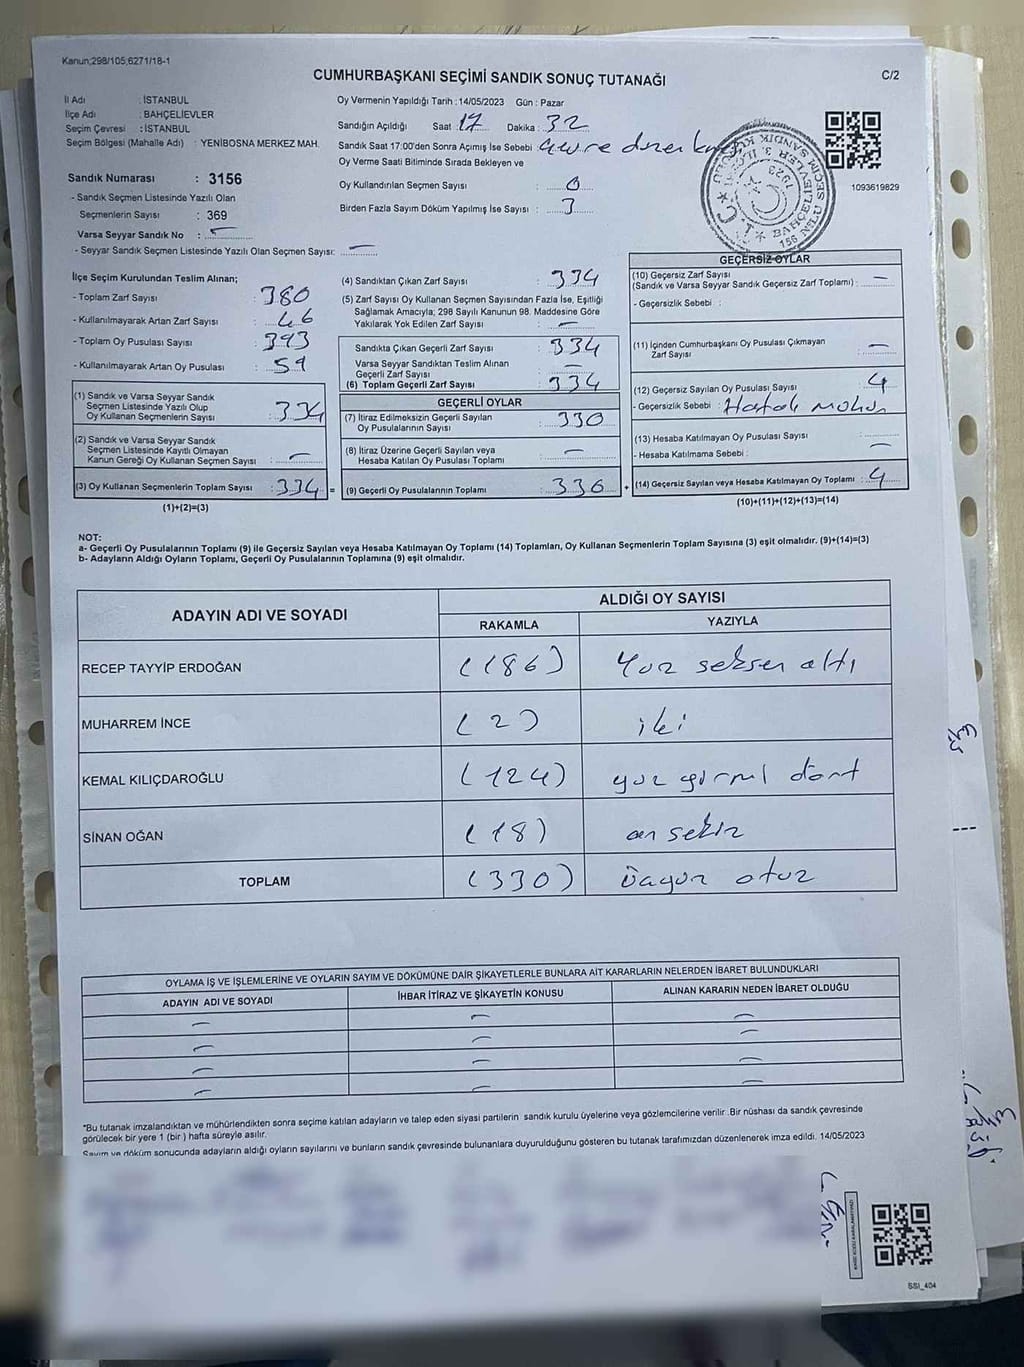 Kanun;298/105;6271/18-1
CUMHURBAŞKANI SEÇİMİ SANDIK SONUÇ TUTANAĞI
C/2
İl Adı : İSTANBUL
İlçe Adı : BAHÇELİEVLER
Seçim Çevresi : İSTANBUL
Seçim Bölgesi (Mahalle Adı) : YENİBOSNA MERKEZ MAH.
Sandık Numarası : 3156
- Sandık Seçmen Listesinde Yazılı Olan
Seçmenlerin Sayısı : 369
Varsa Seyyar Sandık No : -
- Seyyar Sandık Seçmen Listesinde Yazılı Olan Seçmen Sayısı: -
Oy Vermenin Yapıldığı Tarih : 14/05/2023 Gün : Pazar
Sandığın Açıldığı Saat : 17 Dakika : 32
Sandık Saat 17:00'den Sonra Açımış İse Sebebi
Oy Verme Saati Bitiminde Sırada Bekleyen ve
Oy Kullandırılan Seçmen Sayısı : 0
Birden Fazla Sayım Döküm Yapılmış İse Sayısı : 3
1093619829
İlçe Seçim Kurulundan Teslim Alınan;
- Toplam Zarf Sayısı : 380
- Kullanılmayarak Artan Zarf Sayısı : 46
- Toplam Oy Pusulası Sayısı : 393
- Kullanılmayarak Artan Oy Pusulası : 59
(1) Sandık ve Varsa Seyyar Sandık
Seçmen Listesinde Yazılı Olup
Oy Kullanan Seçmenlerin Sayısı : 334
(2) Sandık ve Varsa Seyyar Sandık
Seçmen Listesinde Kayıtlı Olmayan
Kanun Gereği Oy Kullanan Seçmen Sayısı : -
(3) Oy Kullanan Seçmenlerin Toplam Sayısı : 334 =
(1)+(2)=(3)
(4) Sandıktan Çıkan Zarf Sayısı : 334
(5) Zarf Sayısı Oy Kullanan Seçmen Sayısından Fazla İse, Eşitliği
Sağlamak Amacıyla; 298 Sayılı Kanunun 98. Maddesine Göre
Yakılarak Yok Edilen Zarf Sayısı : -
Sandıkta Çıkan Geçerli Zarf Sayısı : 334
Varsa Seyyar Sandıktan Teslim Alınan
Geçerli Zarf Sayısı : -
(6) Toplam Geçerli Zarf Sayısı : 334
GEÇERLİ OYLAR
(7) İtiraz Edilmeksizin Geçerli Sayılan
Oy Pusulalarının Sayısı : 330
(8) İtiraz Üzerine Geçerli Sayılan veya
Hesaba Katılan Oy Pusulası Toplamı : -
(9) Geçerli Oy Pusulalarının Toplamı : 330 +
GEÇERSİZ OYLAR
(10) Geçersiz Zarf Sayısı
(Sandık ve Varsa Seyyar Sandık Geçersiz Zarf Toplamı) : -
- Geçersizlik Sebebi :
(11) İçinden Cumhurbaşkanı Oy Pusulası Çıkmayan
Zarf Sayısı : -
(12) Geçersiz Sayılan Oy Pusulası Sayısı : 4
- Geçersizlik Sebebi : Hatalı mühür
(13) Hesaba Katılmayan Oy Pusulası Sayısı :
- Hesaba Katılmama Sebebi : -
(14) Geçersiz Sayılan veya Hesaba Katılmayan Oy Toplamı : 4
(10)+(11)+(12)+(13)=(14)
NOT:
a- Geçerli Oy Pusulalarının Toplamı (9) ile Geçersiz Sayılan veya Hesaba Katılmayan Oy Toplamı (14) Toplamları, Oy Kullanan Seçmenlerin Toplam Sayısına (3) eşit olmalıdır. (9)+(14)=(3)
b- Adayların Aldığı Oyların Toplamı, Geçerli Oy Pusulalarının Toplamına (9) eşit olmalıdır.
ADAYIN ADI VE SOYADI
ALDIĞI OY SAYISI
RAKAMLA YAZIYLA
RECEP TAYYİP ERDOĞAN (186) Yüz seksen altı
MUHARREM İNCE (2) iki
KEMAL KILIÇDAROĞLU (124) yüz yirmi dört
SİNAN OĞAN (18) on sekiz
TOPLAM (330) üçyüz otuz
OYLAMA İŞ VE İŞLEMLERİNE VE OYLARIN SAYIM VE DÖKÜMÜNE DAİR ŞİKAYETLERLE BUNLARA AİT KARARLARIN NELERDEN İBARET BULUNDUKLARI
ADAYIN ADI VE SOYADI İHBAR İTİRAZ VE ŞİKAYETİN KONUSU ALINAN KARARIN NEDEN İBARET OLDUĞU
*Bu tutanak imzalandıktan ve mühürlendikten sonra seçime katılan adayların ve talep eden siyasi partilerin sandık kurulu üyelerine veya gözlemcilerine verilir .Bir nüshası da sandık çevresinde
görülecek bir yere 1 (bir ) hafta süreyle asılır.
Sayım ve döküm sonucunda adayların aldığı oyların sayılarını ve bunların sandık çevresinde bulunanlara duyurulduğunu gösteren bu tutanak tarafımızdan düzenlenerek imza edildi. 14/05/2023
SSI_404